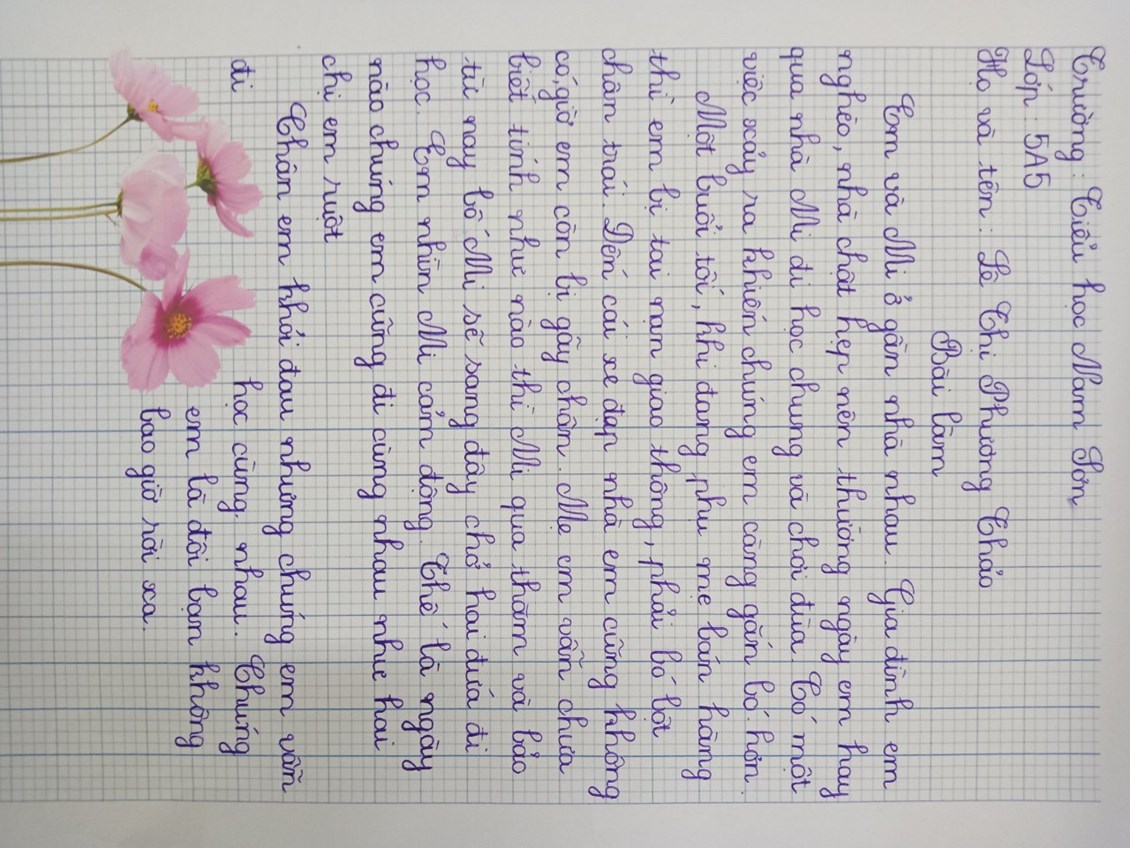 Trường: Tiểu học Nam Sơn
Lớp: 5A5
Họ và tên: Lê Thị Phương Thảo
Bài làm
Em và Mi ở gần nhà nhau. Gia đình em
nghèo, nhà chật hẹp nên thường ngày em hay
qua nhà Mi đi học chung và chơi đùa. Có một
việc xảy ra khiến chúng em càng gắn bó hơn.
Một buổi tối, khi đang phụ mẹ bán hàng
thì em bị tai nạn giao thông, phải bó bột
chân trái. Đến cái xe đạp nhà em cũng không
có, giờ em còn bị gãy chân. Mẹ em vẫn chưa
biết tính như nào thì Mi qua thăm và bảo
từ nay bố Mi sẽ sang đây chở hai đứa đi
học. Em nhìn Mi cảm động. Thế là ngày
nào chúng em cũng đi cùng nhau như hai
chị em ruột
Chân em khỏi đau nhưng chúng em vẫn
đi học cùng nhau. Chúng
em là đôi bạn không
bao giờ rời xa.